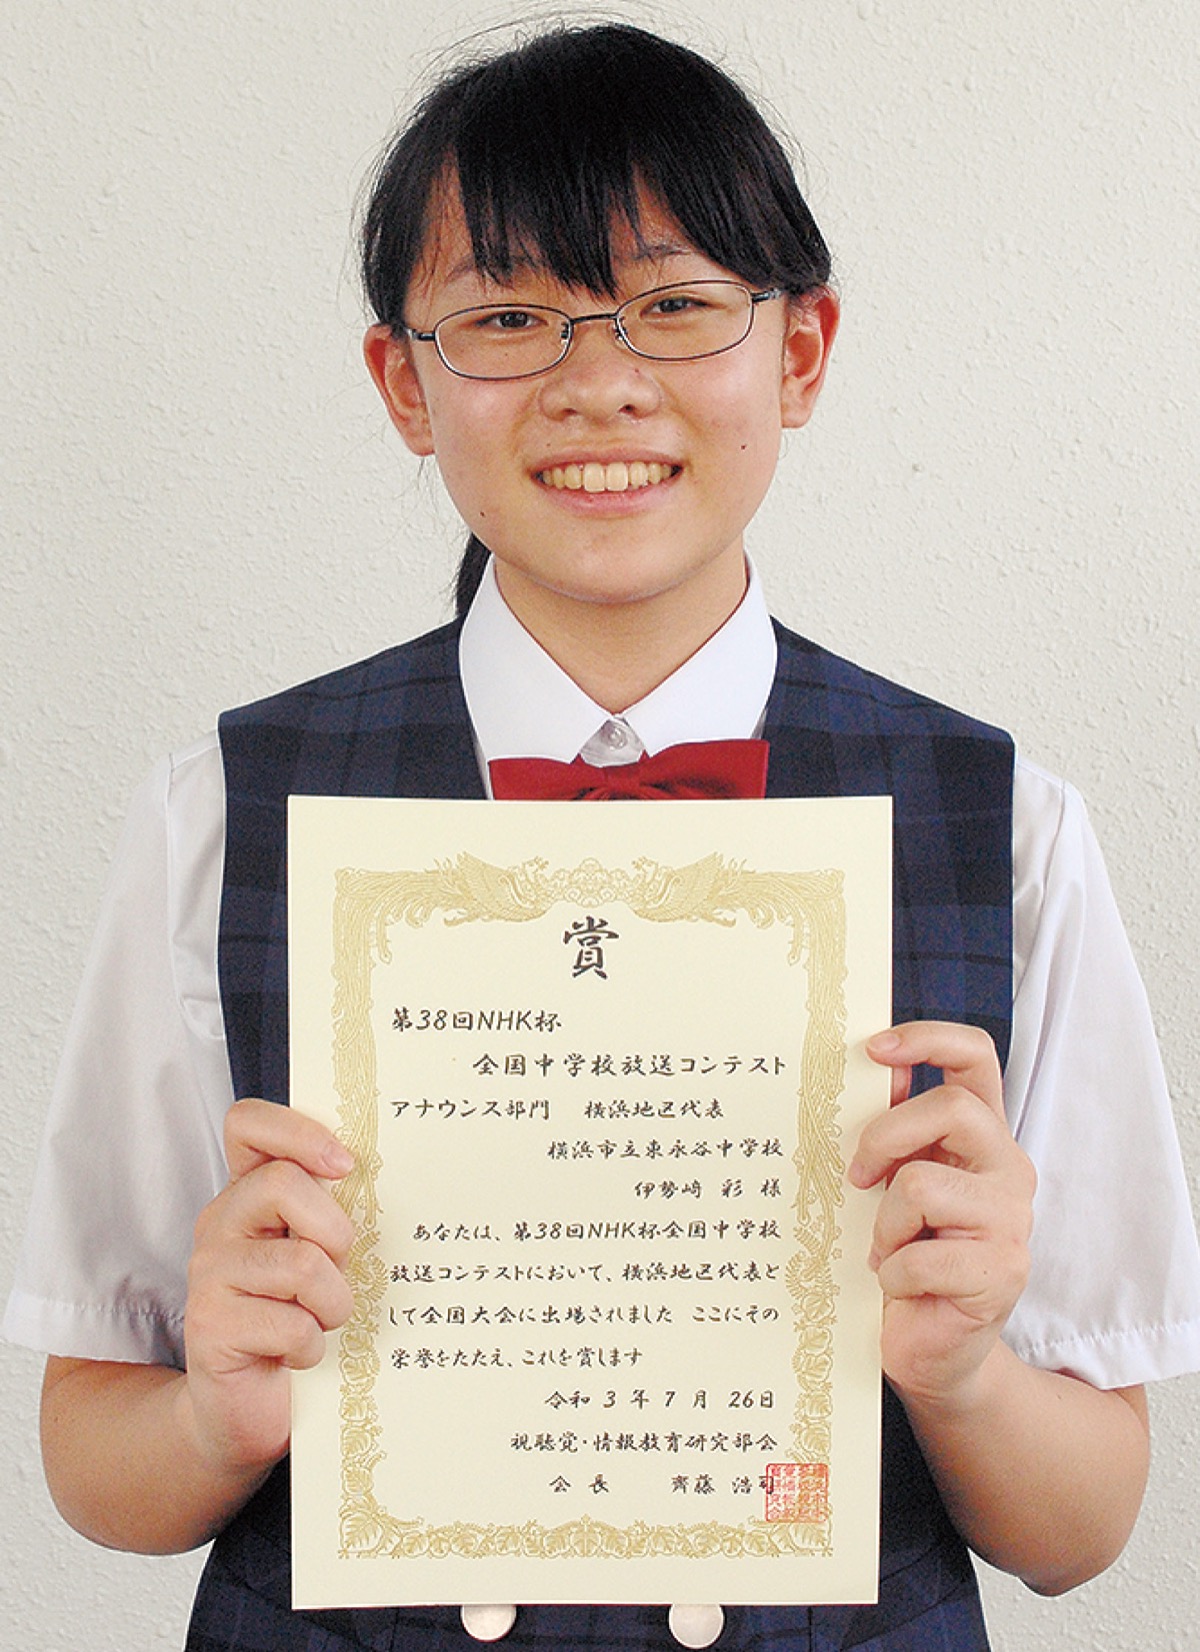 賞
第38回NHK杯
全国中学校放送コンテスト
アナウンス部門 横浜地区代表
横浜市立東永谷中学校
伊勢﨑 彩 様
あなたは、第38回NHK杯全国中学校
放送コンテストにおいて、横浜地区代表と
して全国大会に出場されました ここにその
栄誉をたたえ、これを賞します
令和 3 年 7 月 26日
視聴覚・情報教育研究部会
会 長 齊藤 浩司